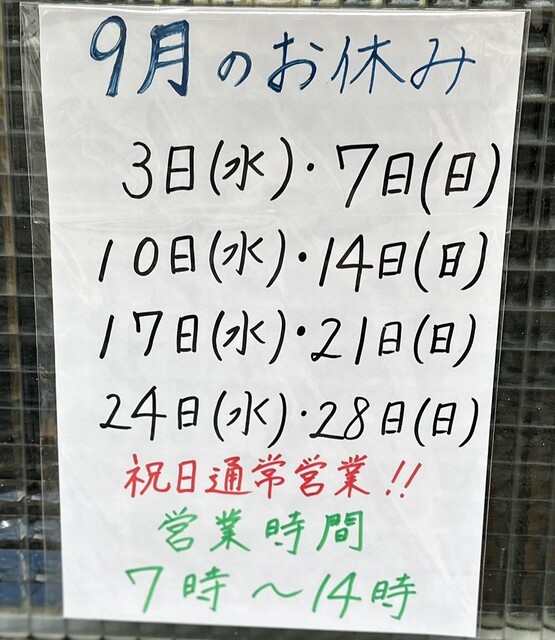 9月のお休み
3日(水)・7日(日)
10日(水)・14日(日)
17日(水)・21日(日)
24日(水)・28日(日)
祝日通常営業!!
営業時間
7時〜14時